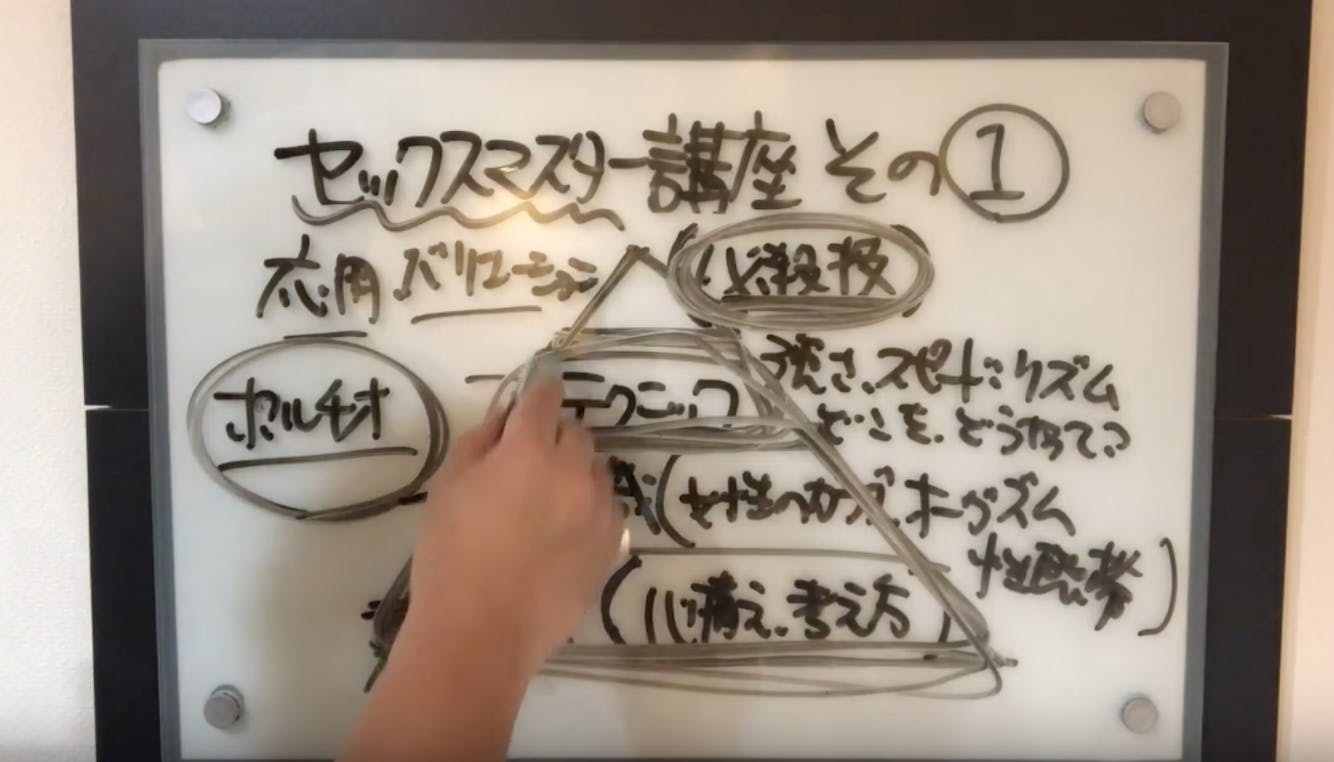 セックスマスター講座 その①
応用 バリエーション (必殺技)
ポルチオ
テクニック 強さ、スピード、リズム
どこを、どうやって?
(女性のカラダ、オーガズム
性感帯)
(心構え、考え方)